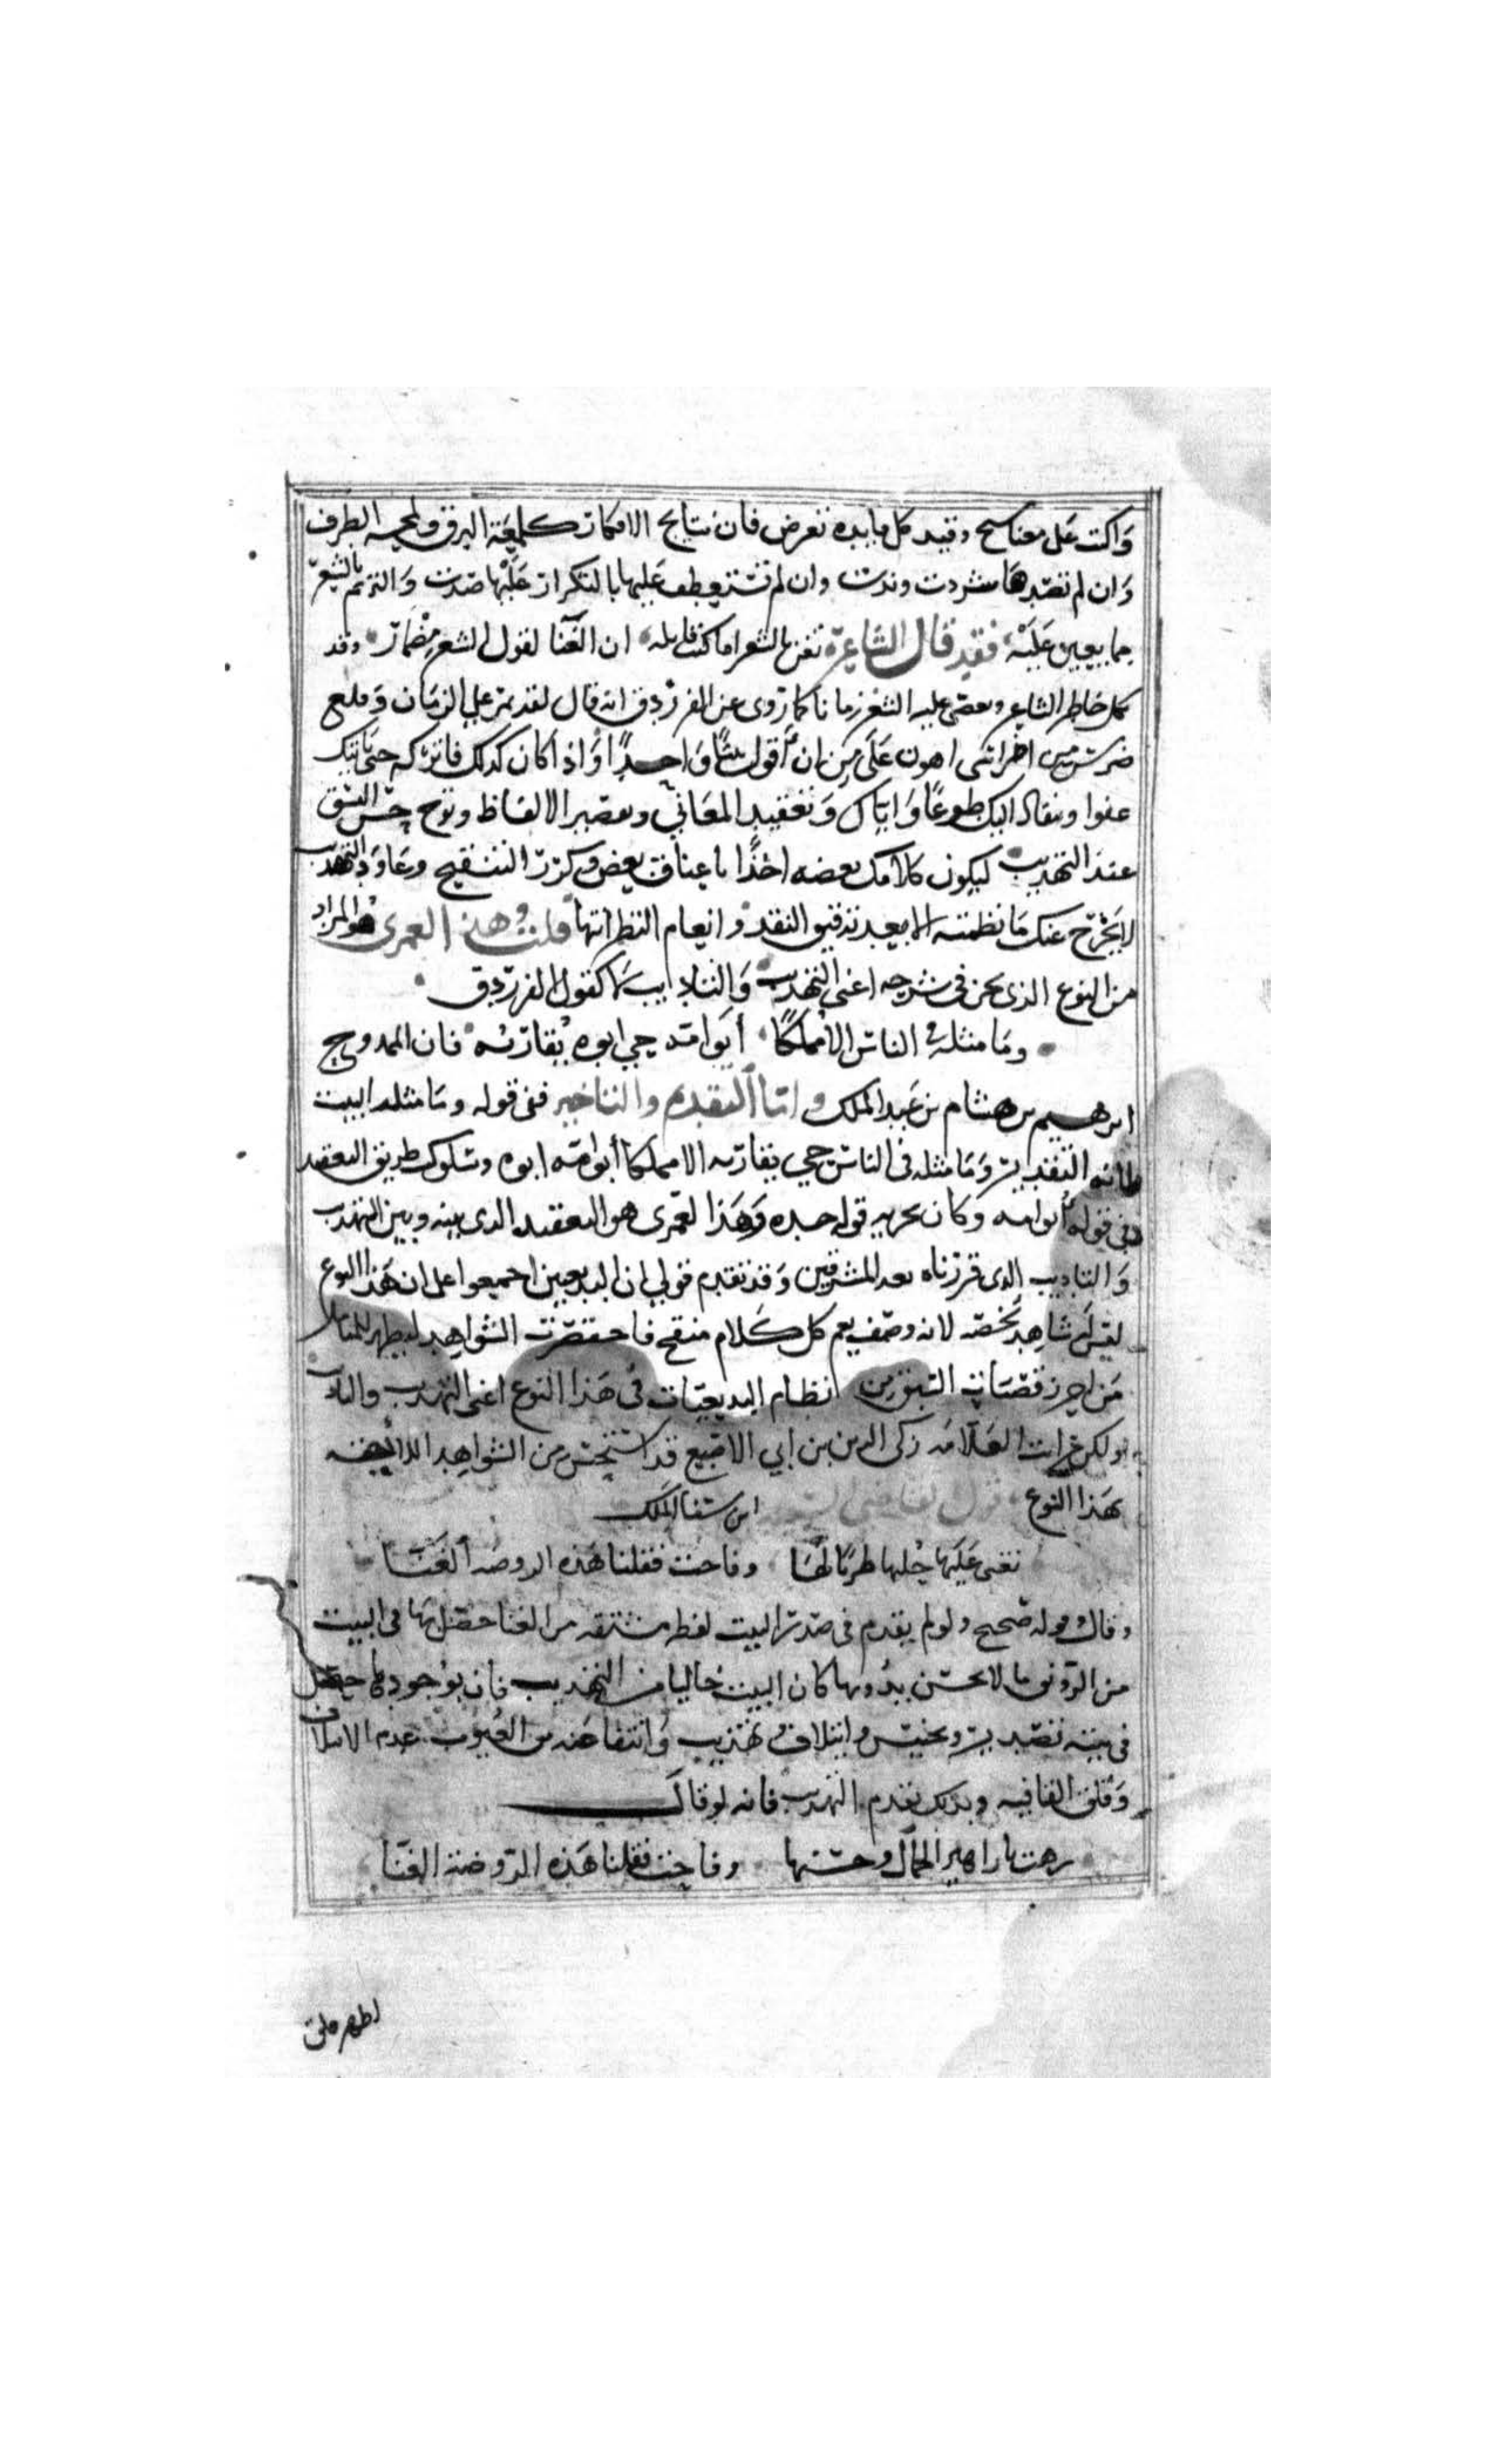 واكتب كل معنا يسنح وقيد كل فايده تعرض فان نتايج الافكار كلمعة البرق ولمحة الطرف
وان لم تقيدها شردت وندت وان لم تستعطف عليها بالتكرار عليها صدت والترنم بالشعر
مما يعين عليه فقد قال الشاعر تغن بالشعر اما كنت قايله ان الغنا لقول الشعر مضمار وقد
يكل خاطر الشاعر ويعصى عليه الشعر زمانا كما روى عن الفرزدق انه قال لقد يمر علي الزمان وقلع
ضرس من اضراسي اهون على من ان أقول بيتا واحدا واذا كان كذلك فاتركه حتى ياتيك
عفوا وينقاد اليك طوعا واياك وتعقيد المعاني وتقصير الالفاظ وتوخ حسن النسق
عند التهذيب ليكون كلامك بعضه اخذا باعناق بعض وكرر التنقيح وعاود التهذيب
لا تخرج عنك ما نظمته الا بعد تدقيق النقد وانعام النظر انتها قلت وهذا لعمرى هو المراد
من النوع الذى نحن فى شرحه اعنى التهذيب والتاديب كقول الفرزدق
وما مثله في الناس الا مملكا أبو امه حي ابوه يقاربه فان الممدوح
ابرهيم بن هشام بن عبد الملك واما التقديم والتاخير ففى قوله وما مثله البيت
فانه التقدير وما مثله فى الناس حي يقاربه الا مملكا أبو امه ابوه وسلوك طريق التعقيد
فى قوله أبو امه وكان يجزيه قوله جده وهذا لعمرى هو التعقيد الذى بينه وبين التهذيب
والتاديب الذى قررناه بعد المشرقين وقد تقدم قولي ان البديعيين اجمعوا على ان هذا النوع
ليس له شاهد يخصه لانه وصف يعم كل كلام منقح فاحتضرت الشواهد ليظهر للمتامل
من احرز قصبات السبق من نظام البديعيات فى هذا النوع اعنى التهذيب والتاديب
ولكن رايت العلامه زكى الدين بن ابي الاصبع قد استحسن من الشواهد اللايقة
بهذا النوع قول القاضى السعيد ابن سنا الملك
تغنى عليها حليها طربا لها وفاحت فقلنا هذه الروضه الغنا
وقال قوله صحيح ولو لم يقدم فى صدر البيت لفظه مشتقه من الغنا حصل بها فى البيت
من الرونق ما لا يحسن بدونها كان البيت خاليا من التهذيب فان بوجودها حصل
فى بيته تصدير وتجنيس وايتلاف تهذيب وانتفا عنه من العيوب عدم الايتلاف
وقلق القافيه وبذلك تقدم التهذيب فانه لو قال
زهت بازاهير الجمال وحسنها وفاحت فقلنا هذه الروضه الغنا